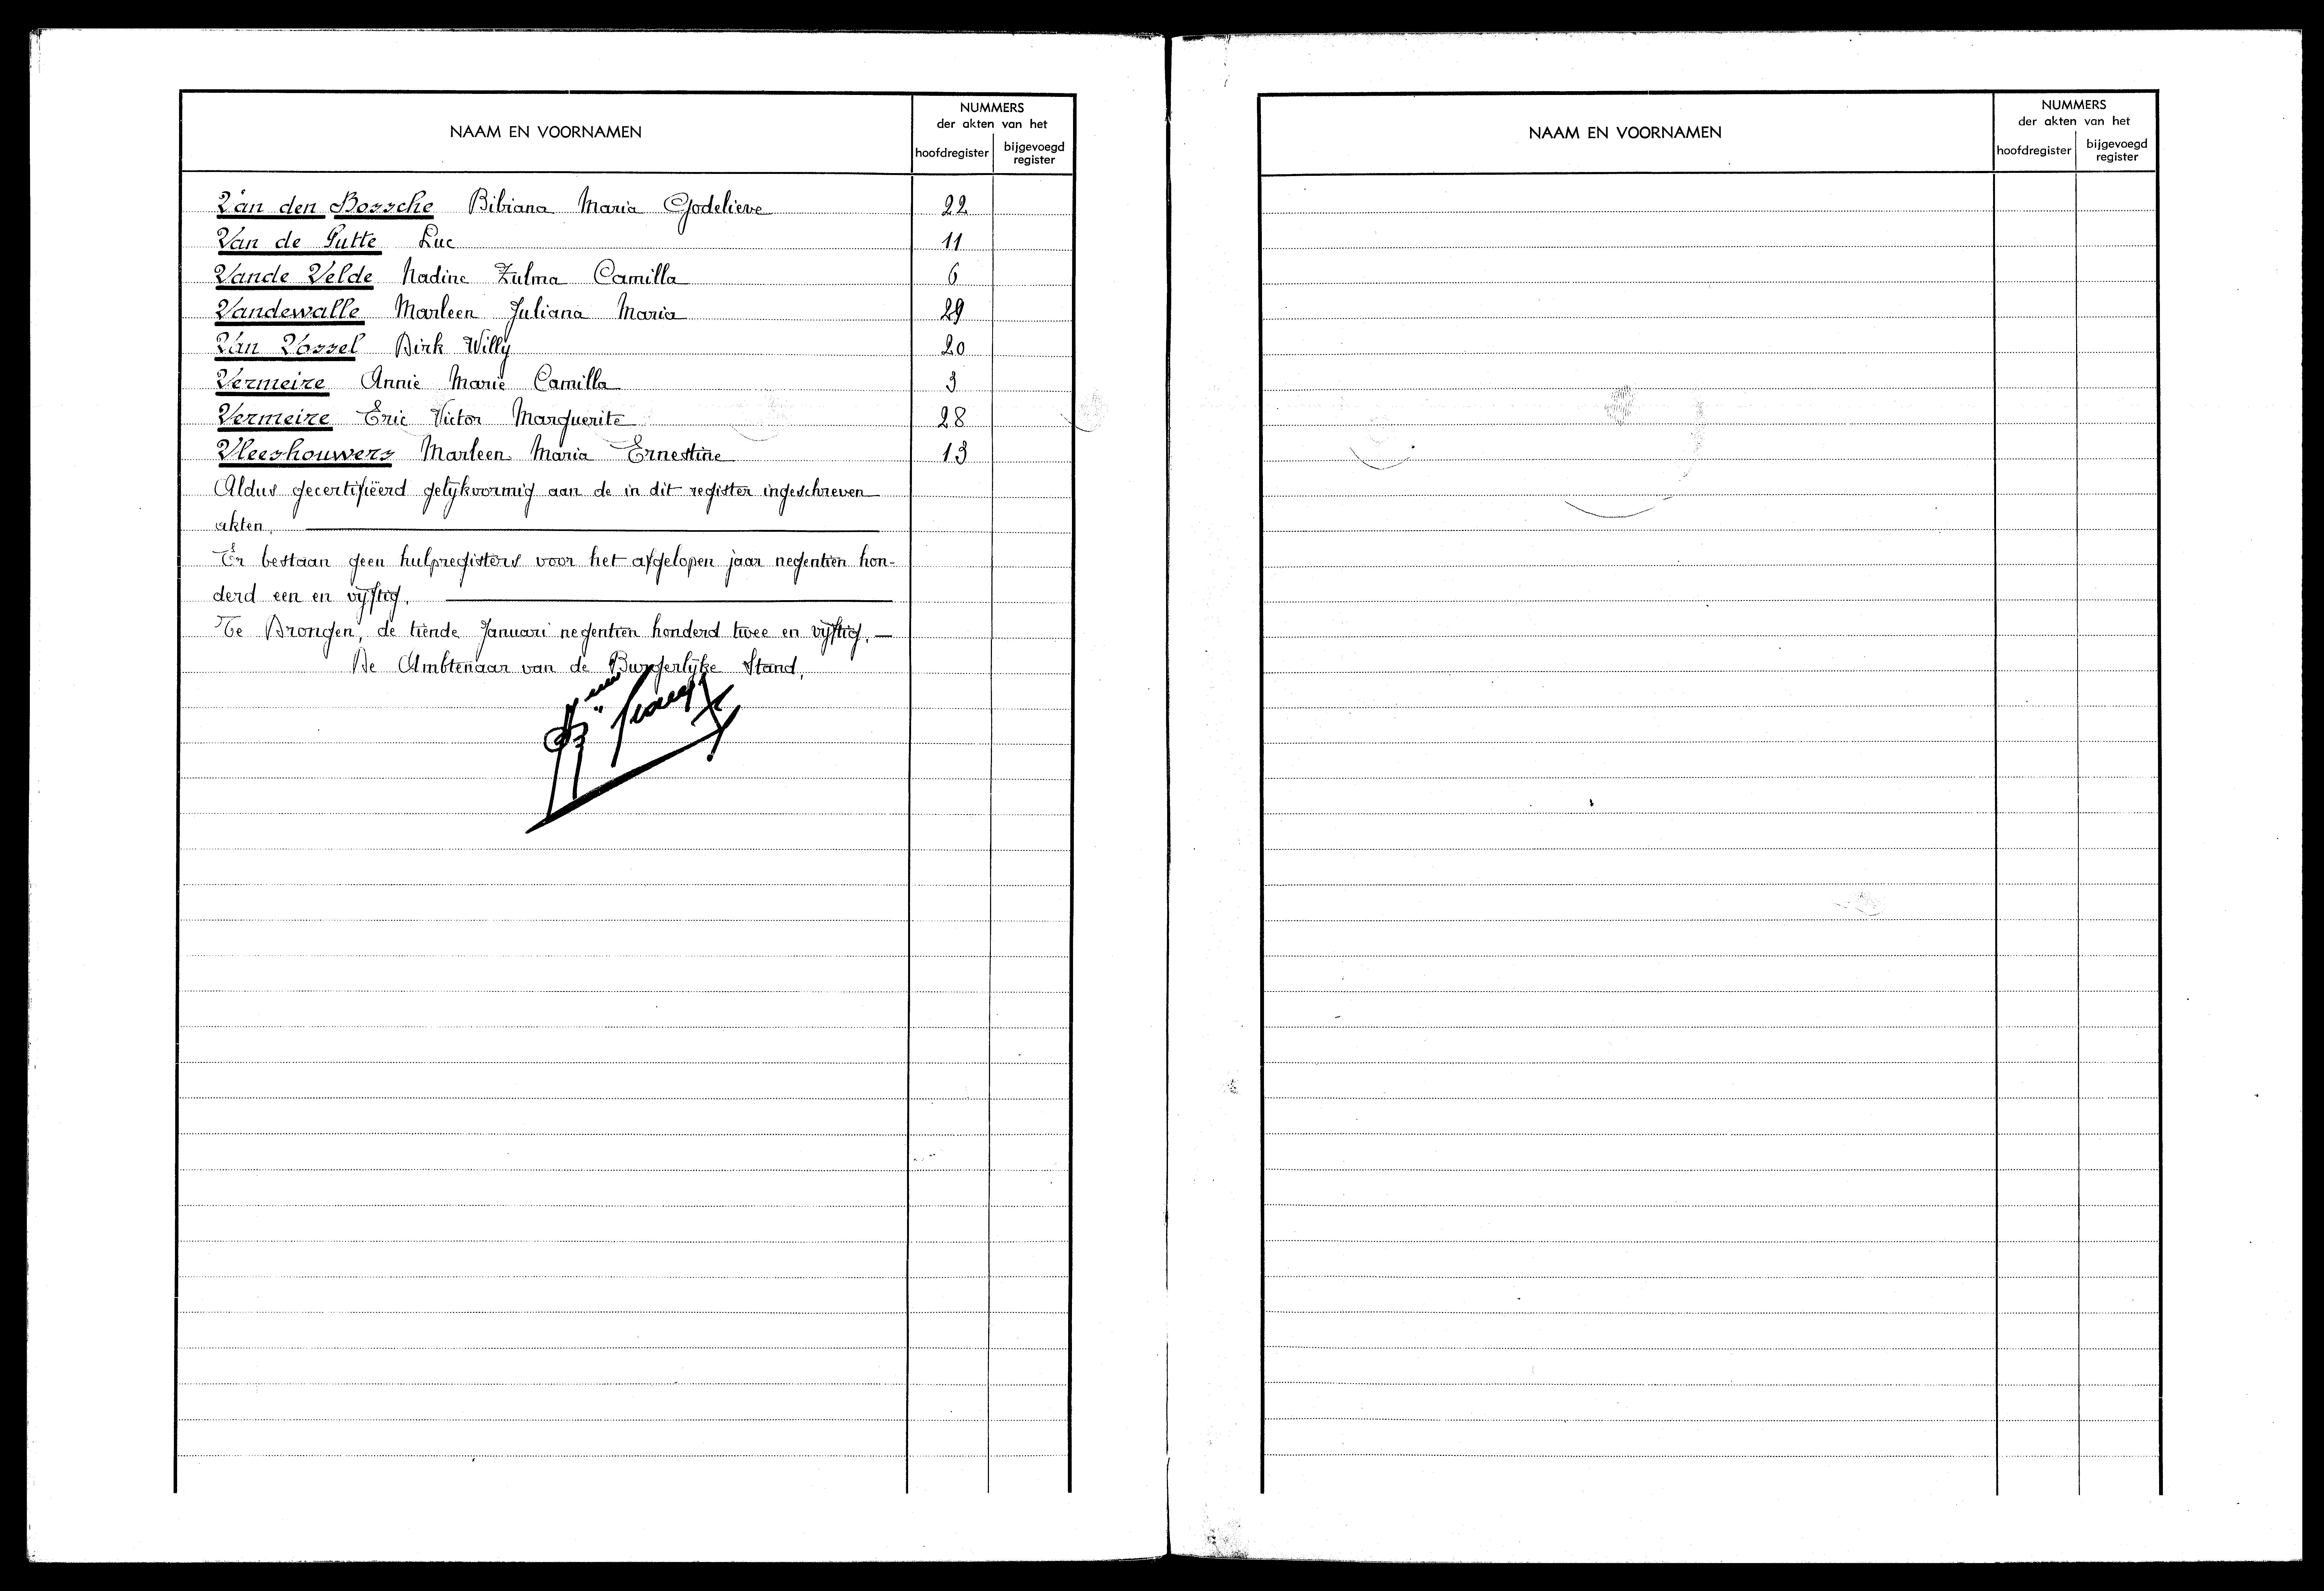 NAAM EN VOORNAMEN
NUMMERS
der akten van het
hoofdregister
bijgevoegd
register
Van den Bossche Bibiana Maria Godelieve 22
Van de Putte Luc 11
Vande Velde Nadine Zulma Camilla 6
Vandewalle Marleen Juliana Maria 29
Van Vossel Dirk Willy 20
Vermeire Annie Marie Camilla 3
Vermeire Eric Victor Marguerite 28
Vleeshouwers Marleen Maria Ernestine 13
Aldus gecertifiëerd gelijkvormig aan de in dit register ingeschreven
akten.
Er bestaan geen hulpregisters voor het afgelopen jaar negentien hon-
derd een en vijftig.
Te Drongen, de tiende Januari negentien honderd twee en vijftig.—
De Ambtenaar van de Burgerlijke Stand,
NAAM EN VOORNAMEN
NUMMERS
der akten van het
hoofdregister
bijgevoegd
register